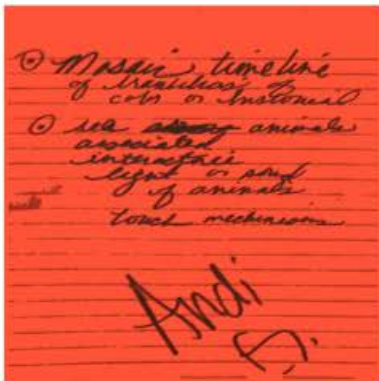 Mosaic timeline
of
or historical
sea animals
associated
interactive
light or sound
of animals
touch mechanisms
Andi